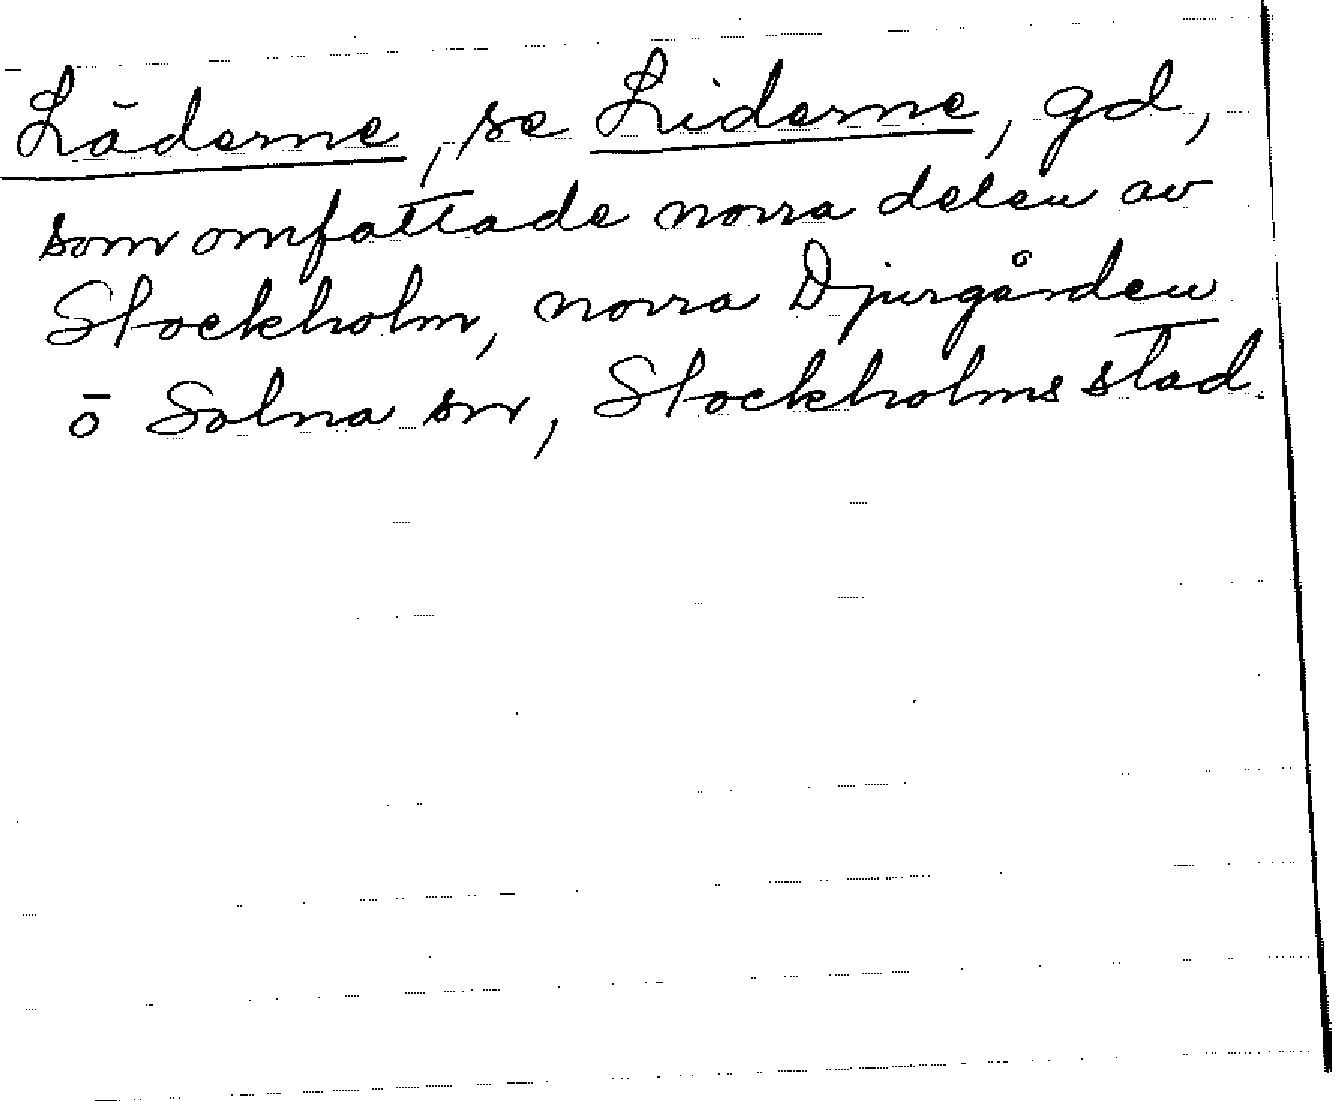 Läderne, se Liderne, gd,
som omfattade norra delen av
Stockholm, norra Djurgården
ö Solna sn, Stockholms stad.